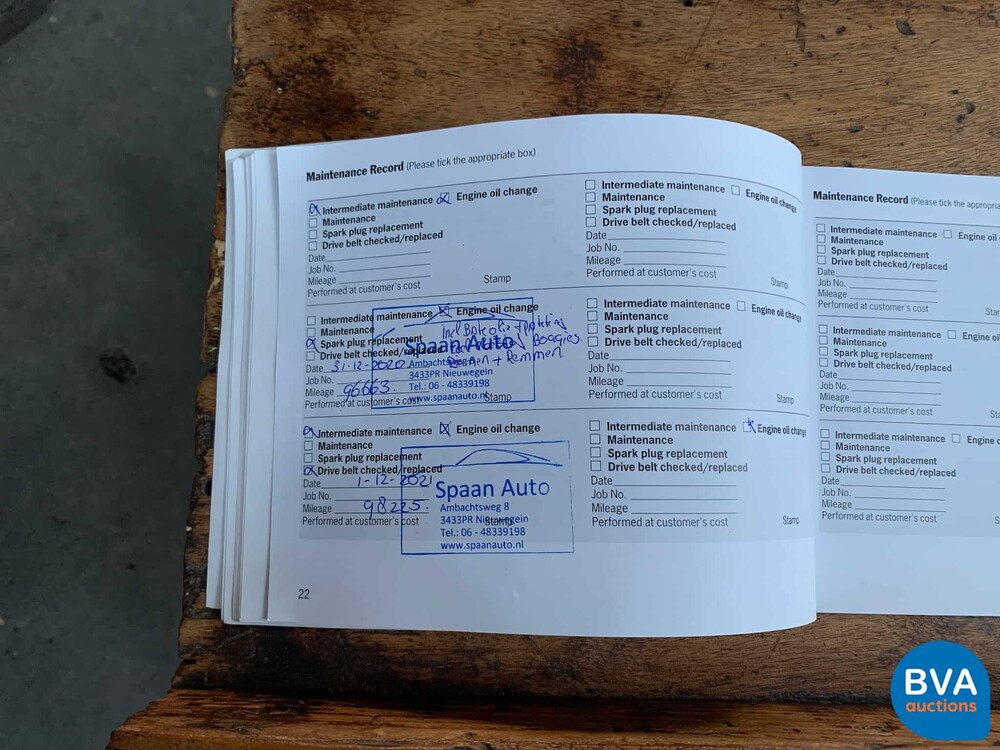 Maintenance Record (Please tick the appropriate box)
Intermediate maintenance Engine oil change
Maintenance
Spark plug replacement
Drive belt checked/replaced
Date
Job No.
Mileage
Performed at customer's cost Stamp
Intermediate maintenance Engine oil change
Maintenance
Spark plug replacement
Drive belt checked/replaced
Date 31-12-2020
Job No.
Mileage 96663.
Performed at customer's cost Stamp
Spaan Auto
Ambachtsweg 8
3433PR Nieuwegein
Tel.: 06 - 48339198
www.spaanauto.nl
Boegies
Riemen + Remmen
Intermediate maintenance Engine oil change
Maintenance
Spark plug replacement
Drive belt checked/replaced
Date 1-12-2021
Job No.
Mileage 98225.
Performed at customer's cost Stamp
Spaan Auto
Ambachtsweg 8
3433PR Nieuwegein
Tel.: 06 - 48339198
www.spaanauto.nl
22
Intermediate maintenance Engine oil change
Maintenance
Spark plug replacement
Drive belt checked/replaced
Date
Job No.
Mileage
Performed at customer's cost Stamp
Intermediate maintenance Engine oil change
Maintenance
Spark plug replacement
Drive belt checked/replaced
Date
Job No.
Mileage
Performed at customer's cost Stamp
Intermediate maintenance Engine oil change
Maintenance
Spark plug replacement
Drive belt checked/replaced
Date
Job No.
Mileage
Performed at customer's cost Stamp
Maintenance Record (Please tick the appropria
Intermediate maintenance Engine oil c
Maintenance
Spark plug replacement
Drive belt checked/replaced
Date
Job No.
Mileage
Performed at customer's cost St
Intermediate maintenance Engine oil
Maintenance
Spark plug replacement
Drive belt checked/replaced
Date
Job No.
Mileage
Performed at customer's cost Sta
Intermediate maintenance Engine o
Maintenance
Spark plug replacement
Drive belt checked/replaced
Date
Job No.
Mileage
Performed at customer's cost St
BVA
auctions